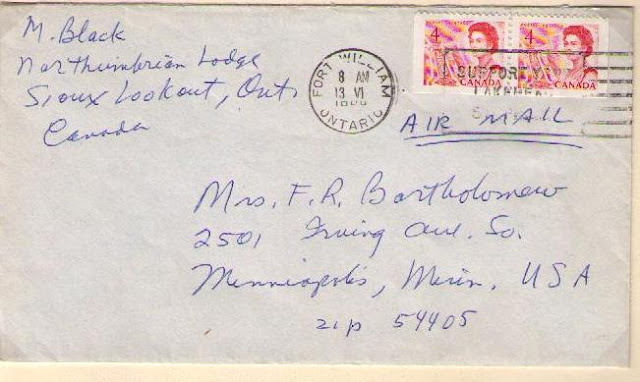 M. Black
Northumbrian Lodge
Sioux Lookout, Ont.
Canada
FORT WILLIAM
8 AM
13 VI
ONTARIO
4
4
CANADA
SUPPORT
AIR MAIL
Mrs. F. R. Bartholomew
2501 Irving Ave. So.
Minniapolis, Minn, USA
zip 54405